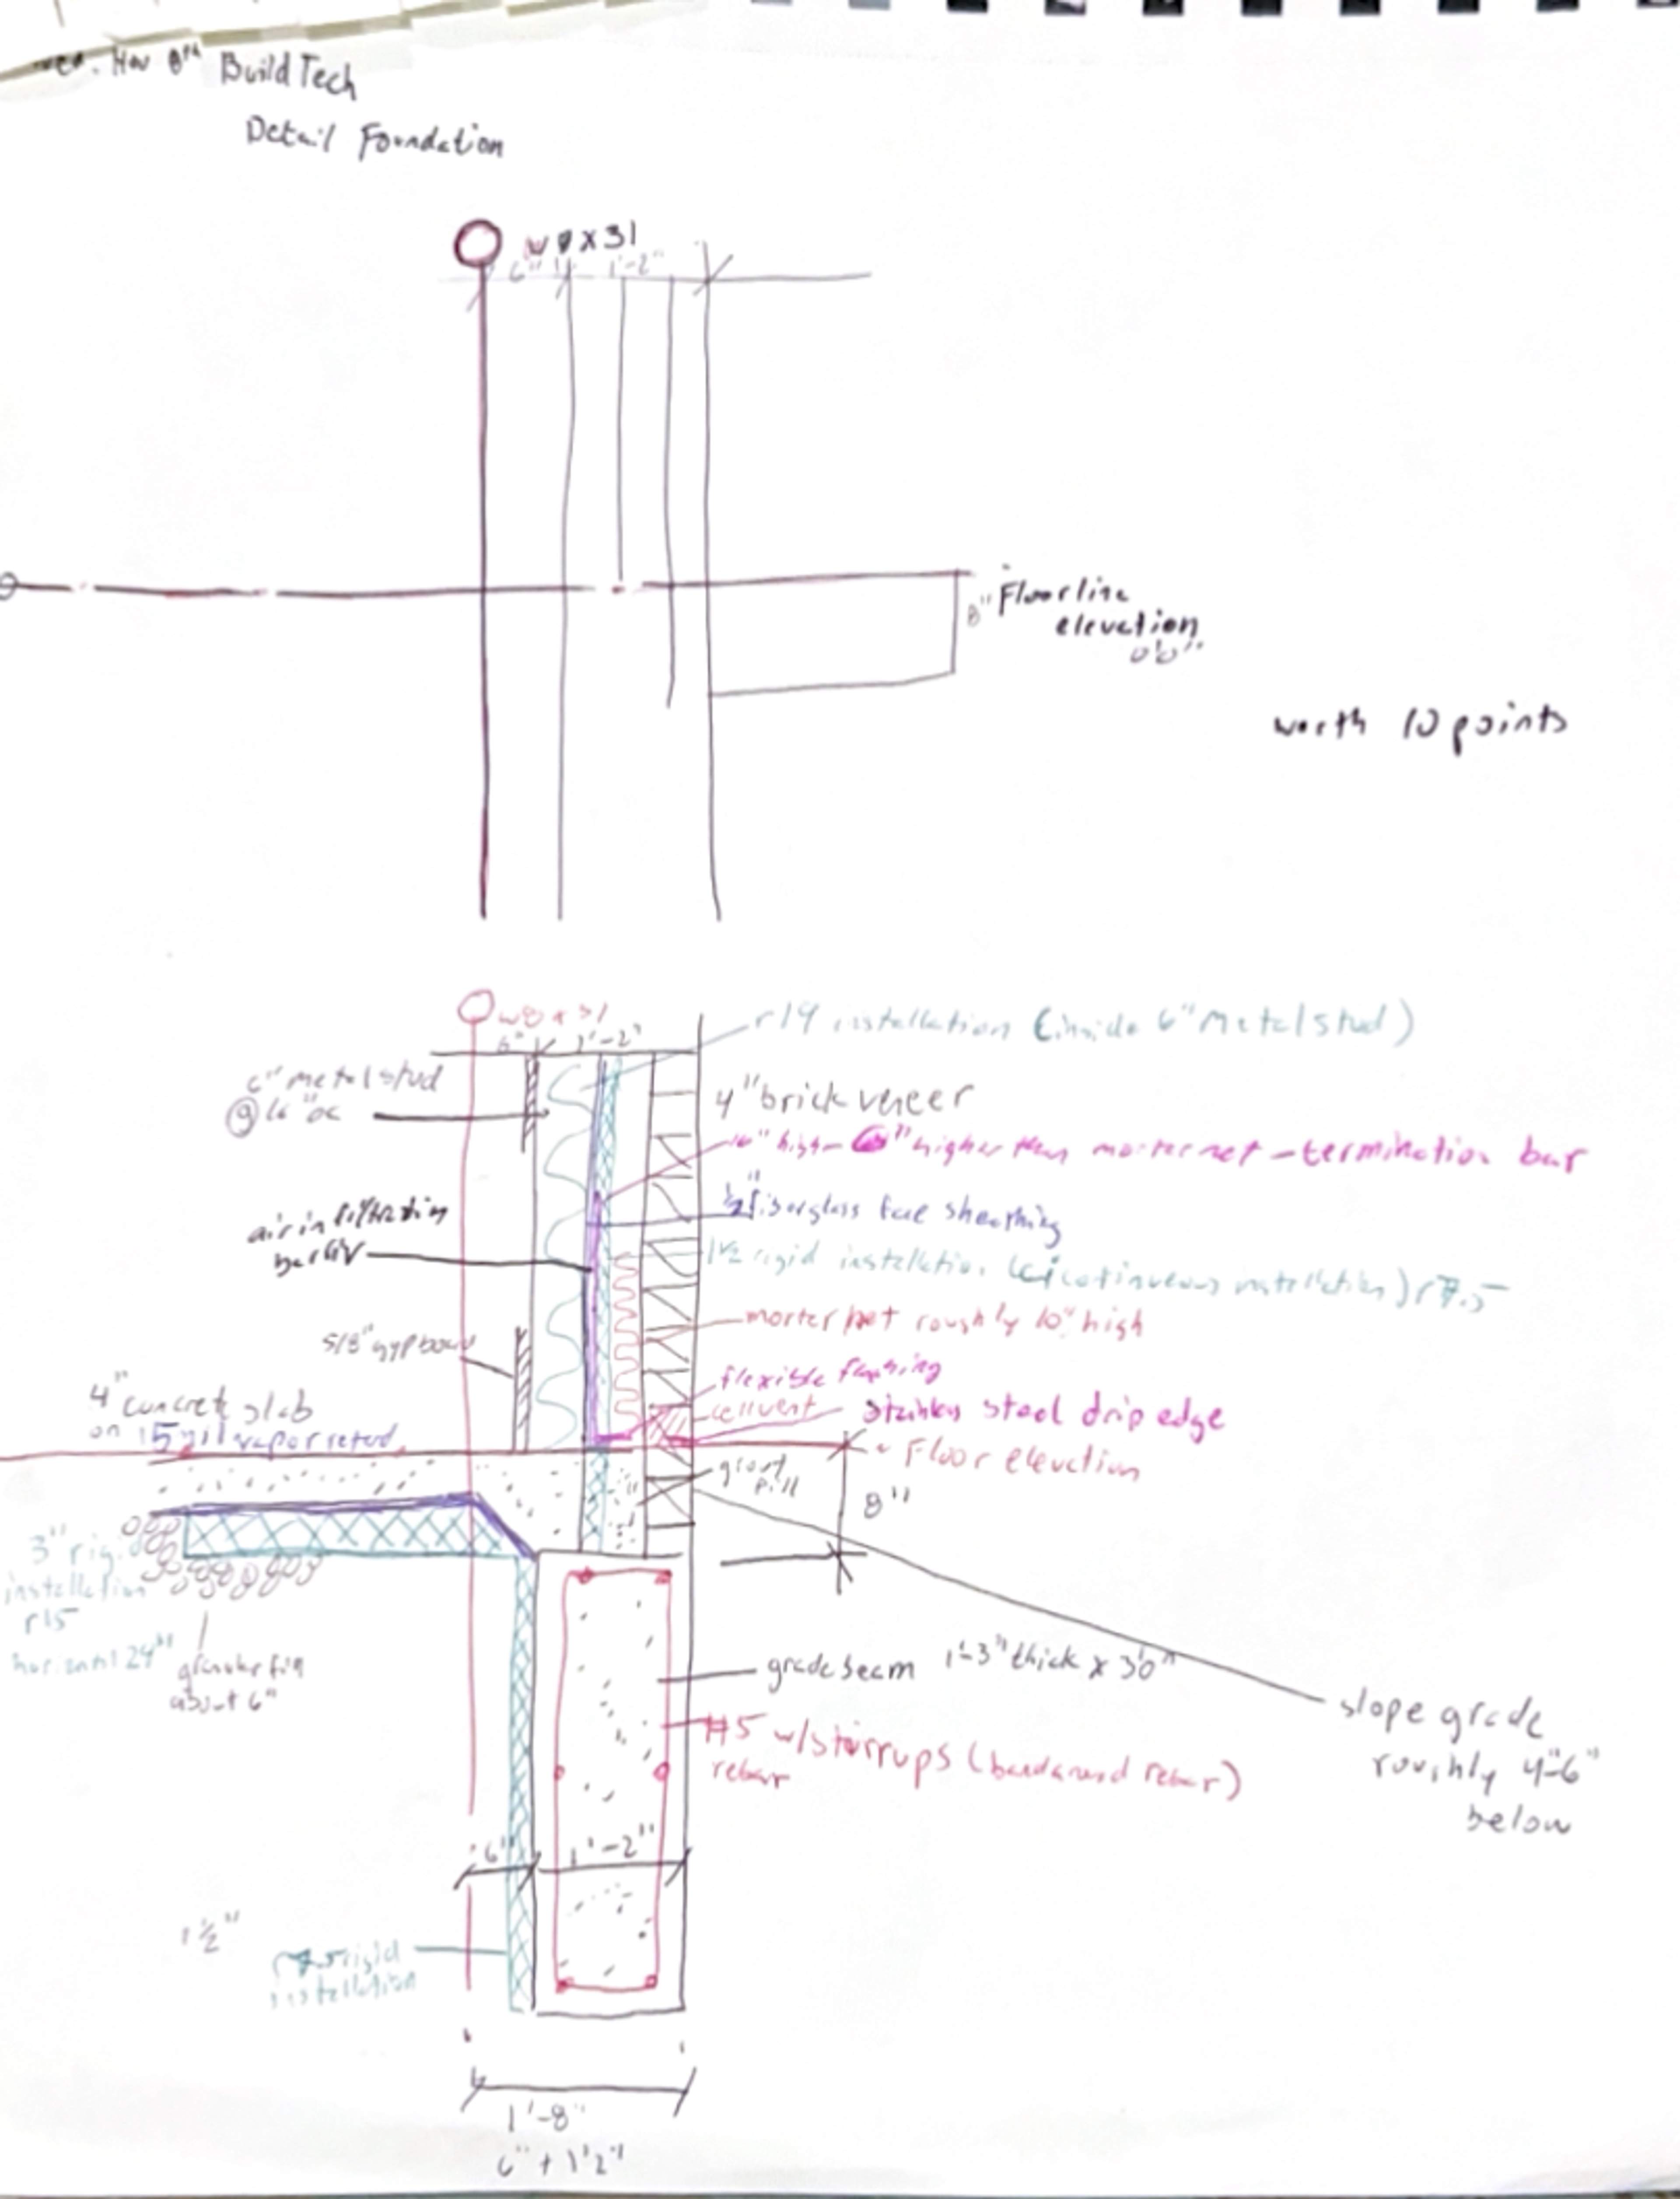 Nov 8th BuildTech
Detail Foundation
W8x31
6" 1'-2"
8" Floorline
elevation
0'0"
worth 10 points
W8x31
6" 1'-2"
r19 installation (inside 6" Metal stud)
6" metal stud
@ 16" oc
4" brick veneer
16" high - 6" higher than morter net - termination bar
air infiltration
1/2" fiberglass face sheathing
1 1/2 rigid installation (ci continueous installation) r7.5
morter net roughly 10" high
5/8" gyp board
flexible flashing
cellvent
stainless steel drip edge
4" concrete slab
on 15 mil vapor retard
Floor elevation
grout
fill
8"
3" rigid
installation
r15
horizontal 24"
granular fill
about 6"
grade beam 1'-3" thick x 30"
slope grade
roughly 4"-6"
below
#5 w/stirrups (bend around rebar)
rebar
6" 1'-2"
1 1/2"
rigid
installation
1'-8"
6" + 1'2"